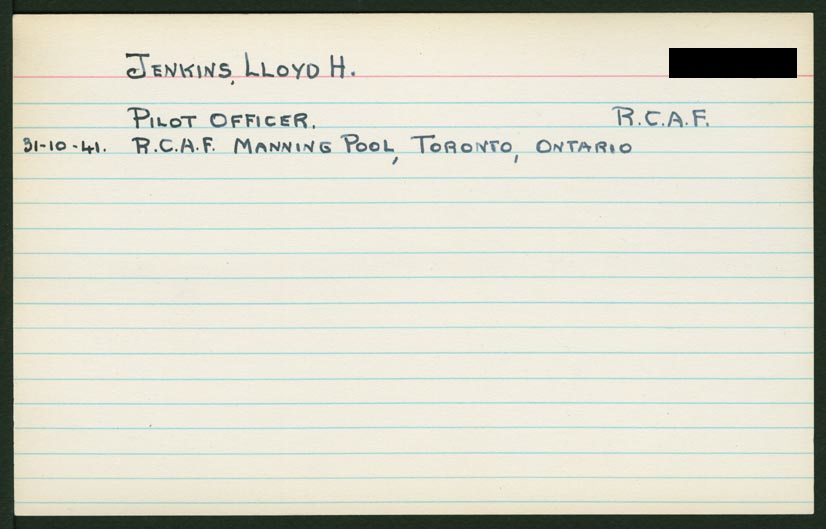 JENKINS, LLOYD H.
PILOT OFFICER. R.C.A.F.
31-10-41. R.C.A.F. MANNING POOL, TORONTO, ONTARIO